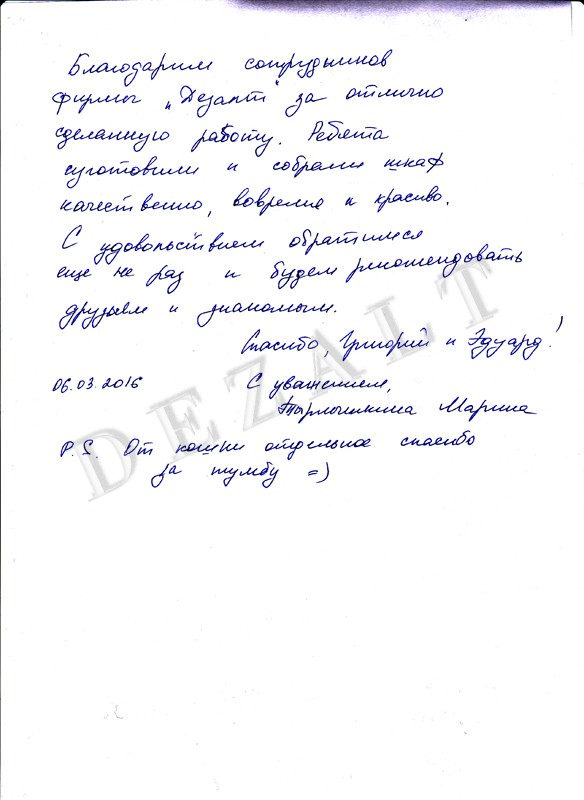 Благодарим сотрудников
фирмы "Дезалт" за отлично
сделанную работу. Ребята
изготовили и собрали шкаф
качественно, вовремя и красиво.
С удовольствием обратимся
еще не раз и будем рекомендовать
друзьям и знакомым.
Спасибо, Григорий и Эдуард!
06.03.2016 С уважением,
Марина
P.S. От кошки отдельное спасибо
за тумбу =)
DEZALT